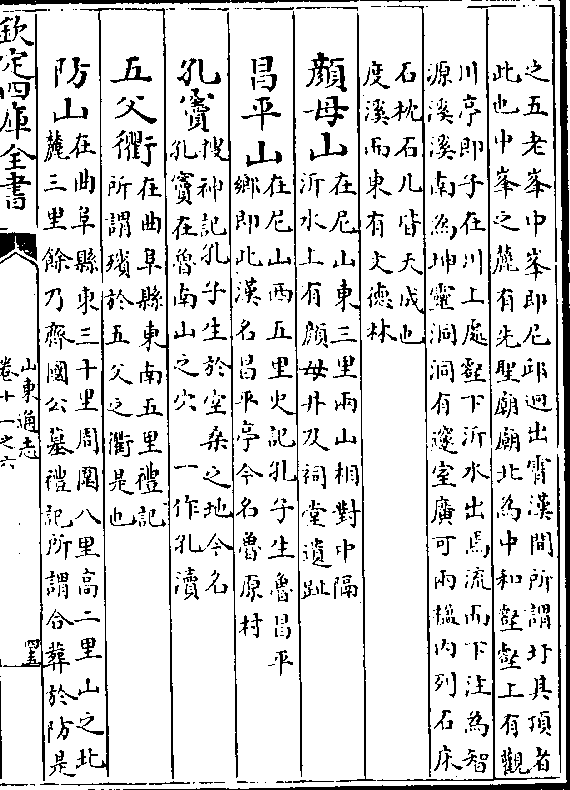 之五老峯中峯即尼邱迥出霄漢間所謂圩其頂者
此也中峯之麓有先聖廟廟北為中和壑壑上有觀
川亭即子在川上處壑下沂水出焉流而下注為智
源溪溪南為坤靈洞洞有邃室廣可兩楹内列石床
石枕石几皆天成也
度溪而東有文德林
顔母山在尼山東三里兩山相對中隔
沂水上有顔母井及祠堂遺趾
昌平山在尼山西五里史記孔子生魯昌平
鄉即此漢名昌平亭今名魯原村
孔竇搜神記孔子生於空桑之地今名
孔竇在魯南山之穴 一作孔瀆
五父衢在曲阜縣東南五里禮記
所謂殯於五父之衢是也
防山在曲阜縣東三十里周圍八里高二里山之北
麓三里餘乃齊國公墓禮記所謂合葬於防是
欽定四庫全書
山東通志
卷十一之六